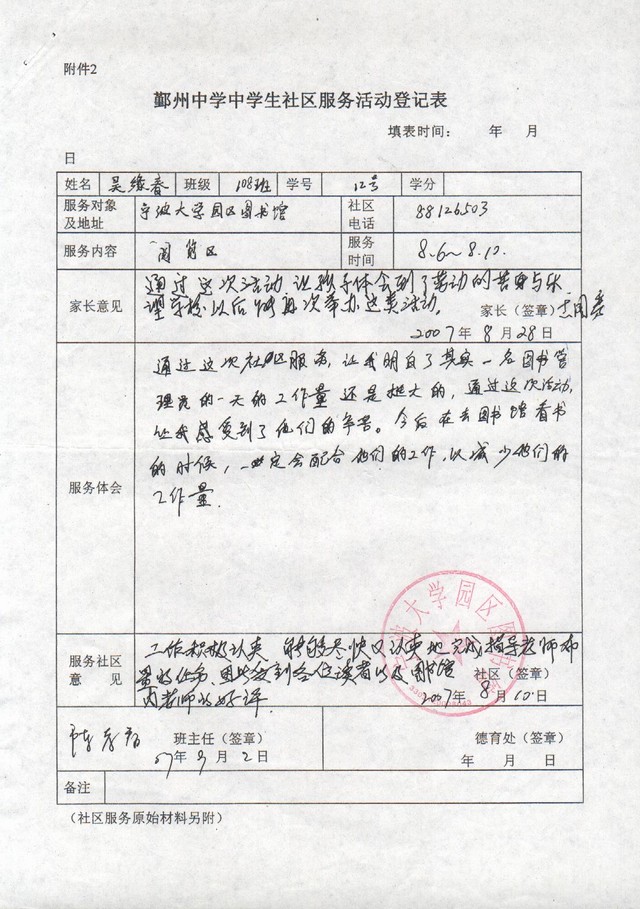 附件2
鄞州中学中学生社区服务活动登记表
填表时间： 年 月
日
姓名 吴缘春 班级 108班 学号 12号 学分
服务对象及地址 宁波大学园区图书馆 社区电话 88126503
服务内容 阅览区 服务时间 8.6~8.10.
家长意见 通过这次活动,让孩子体会到了劳动的苦与乐
望学校以后能再次举办这类活动。
家长（签章）
2007年8月28日
服务体会
通过这次社区服务，让我明白了其实一名图书管
理员的一天的工作量还是挺大的，通过这次活动，
让我感受到了他们的辛苦。今后在去图书馆看书
的时候，一定会配合他们的工作，以减少他们的
工作量.
服务社区意 见
工作积极认真 能够尽快又认真地完成指导老师布
置的任务,因此受到各位读者以及图书馆
内老师的好评.
社区（签章）
2007年8月10日
班主任（签章） 德育处（签章）
07年9月2日 年 月 日
备注
（社区服务原始材料另附）